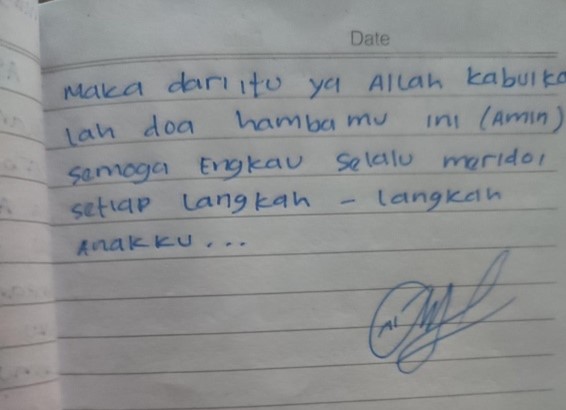 Date
Maka dari itu ya Allah kabulka
lah doa hambamu ini (Amin)
semoga Engkau selalu meridoi
setiap langkah - langkah
anakku...